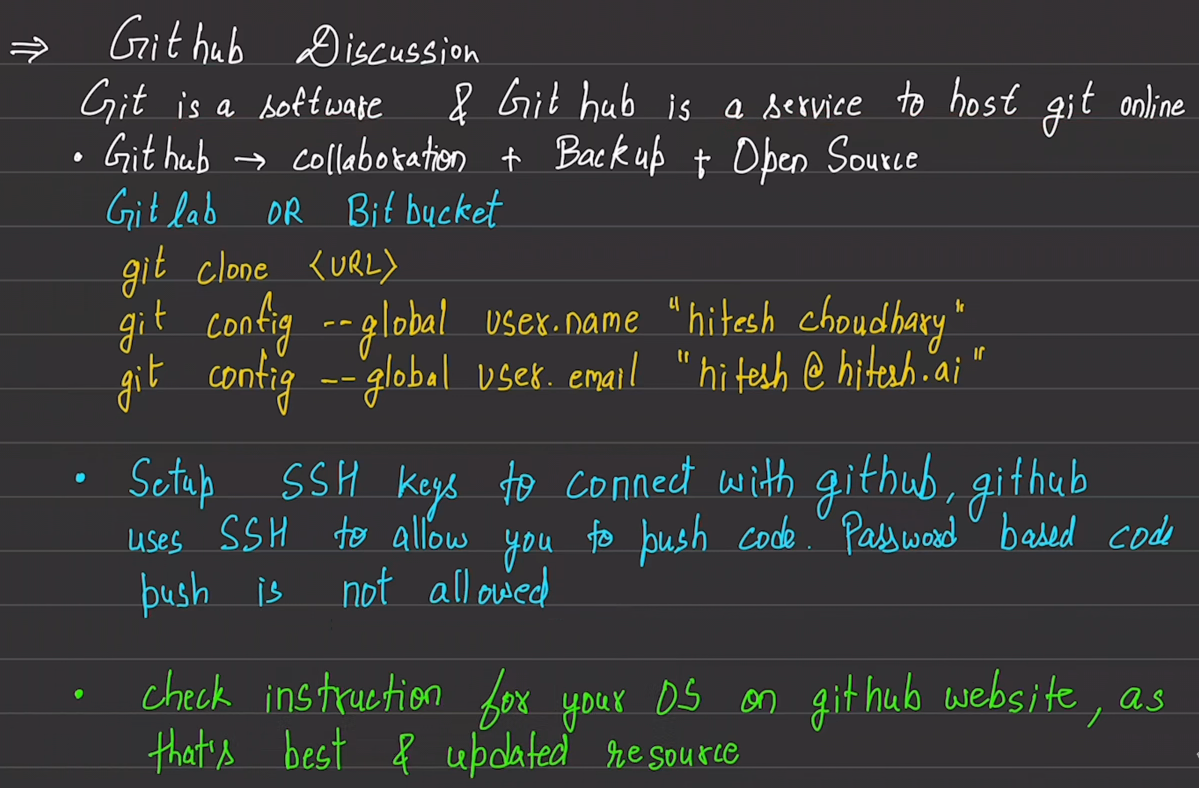 ⇒ Github Discussion
Git is a software & Git hub is a service to host git online
• Github → collaboration + Backup + Open Source
Gitlab OR Bitbucket
git clone <URL>
git config --global user.name "hitesh choudhary"
git config --global user.email "hitesh@hitesh.ai"
• Setup SSH keys to connect with github, github
uses SSH to allow you to push code. Password based code
push is not allowed
• check instruction for your OS on github website, as
that's best & updated resource